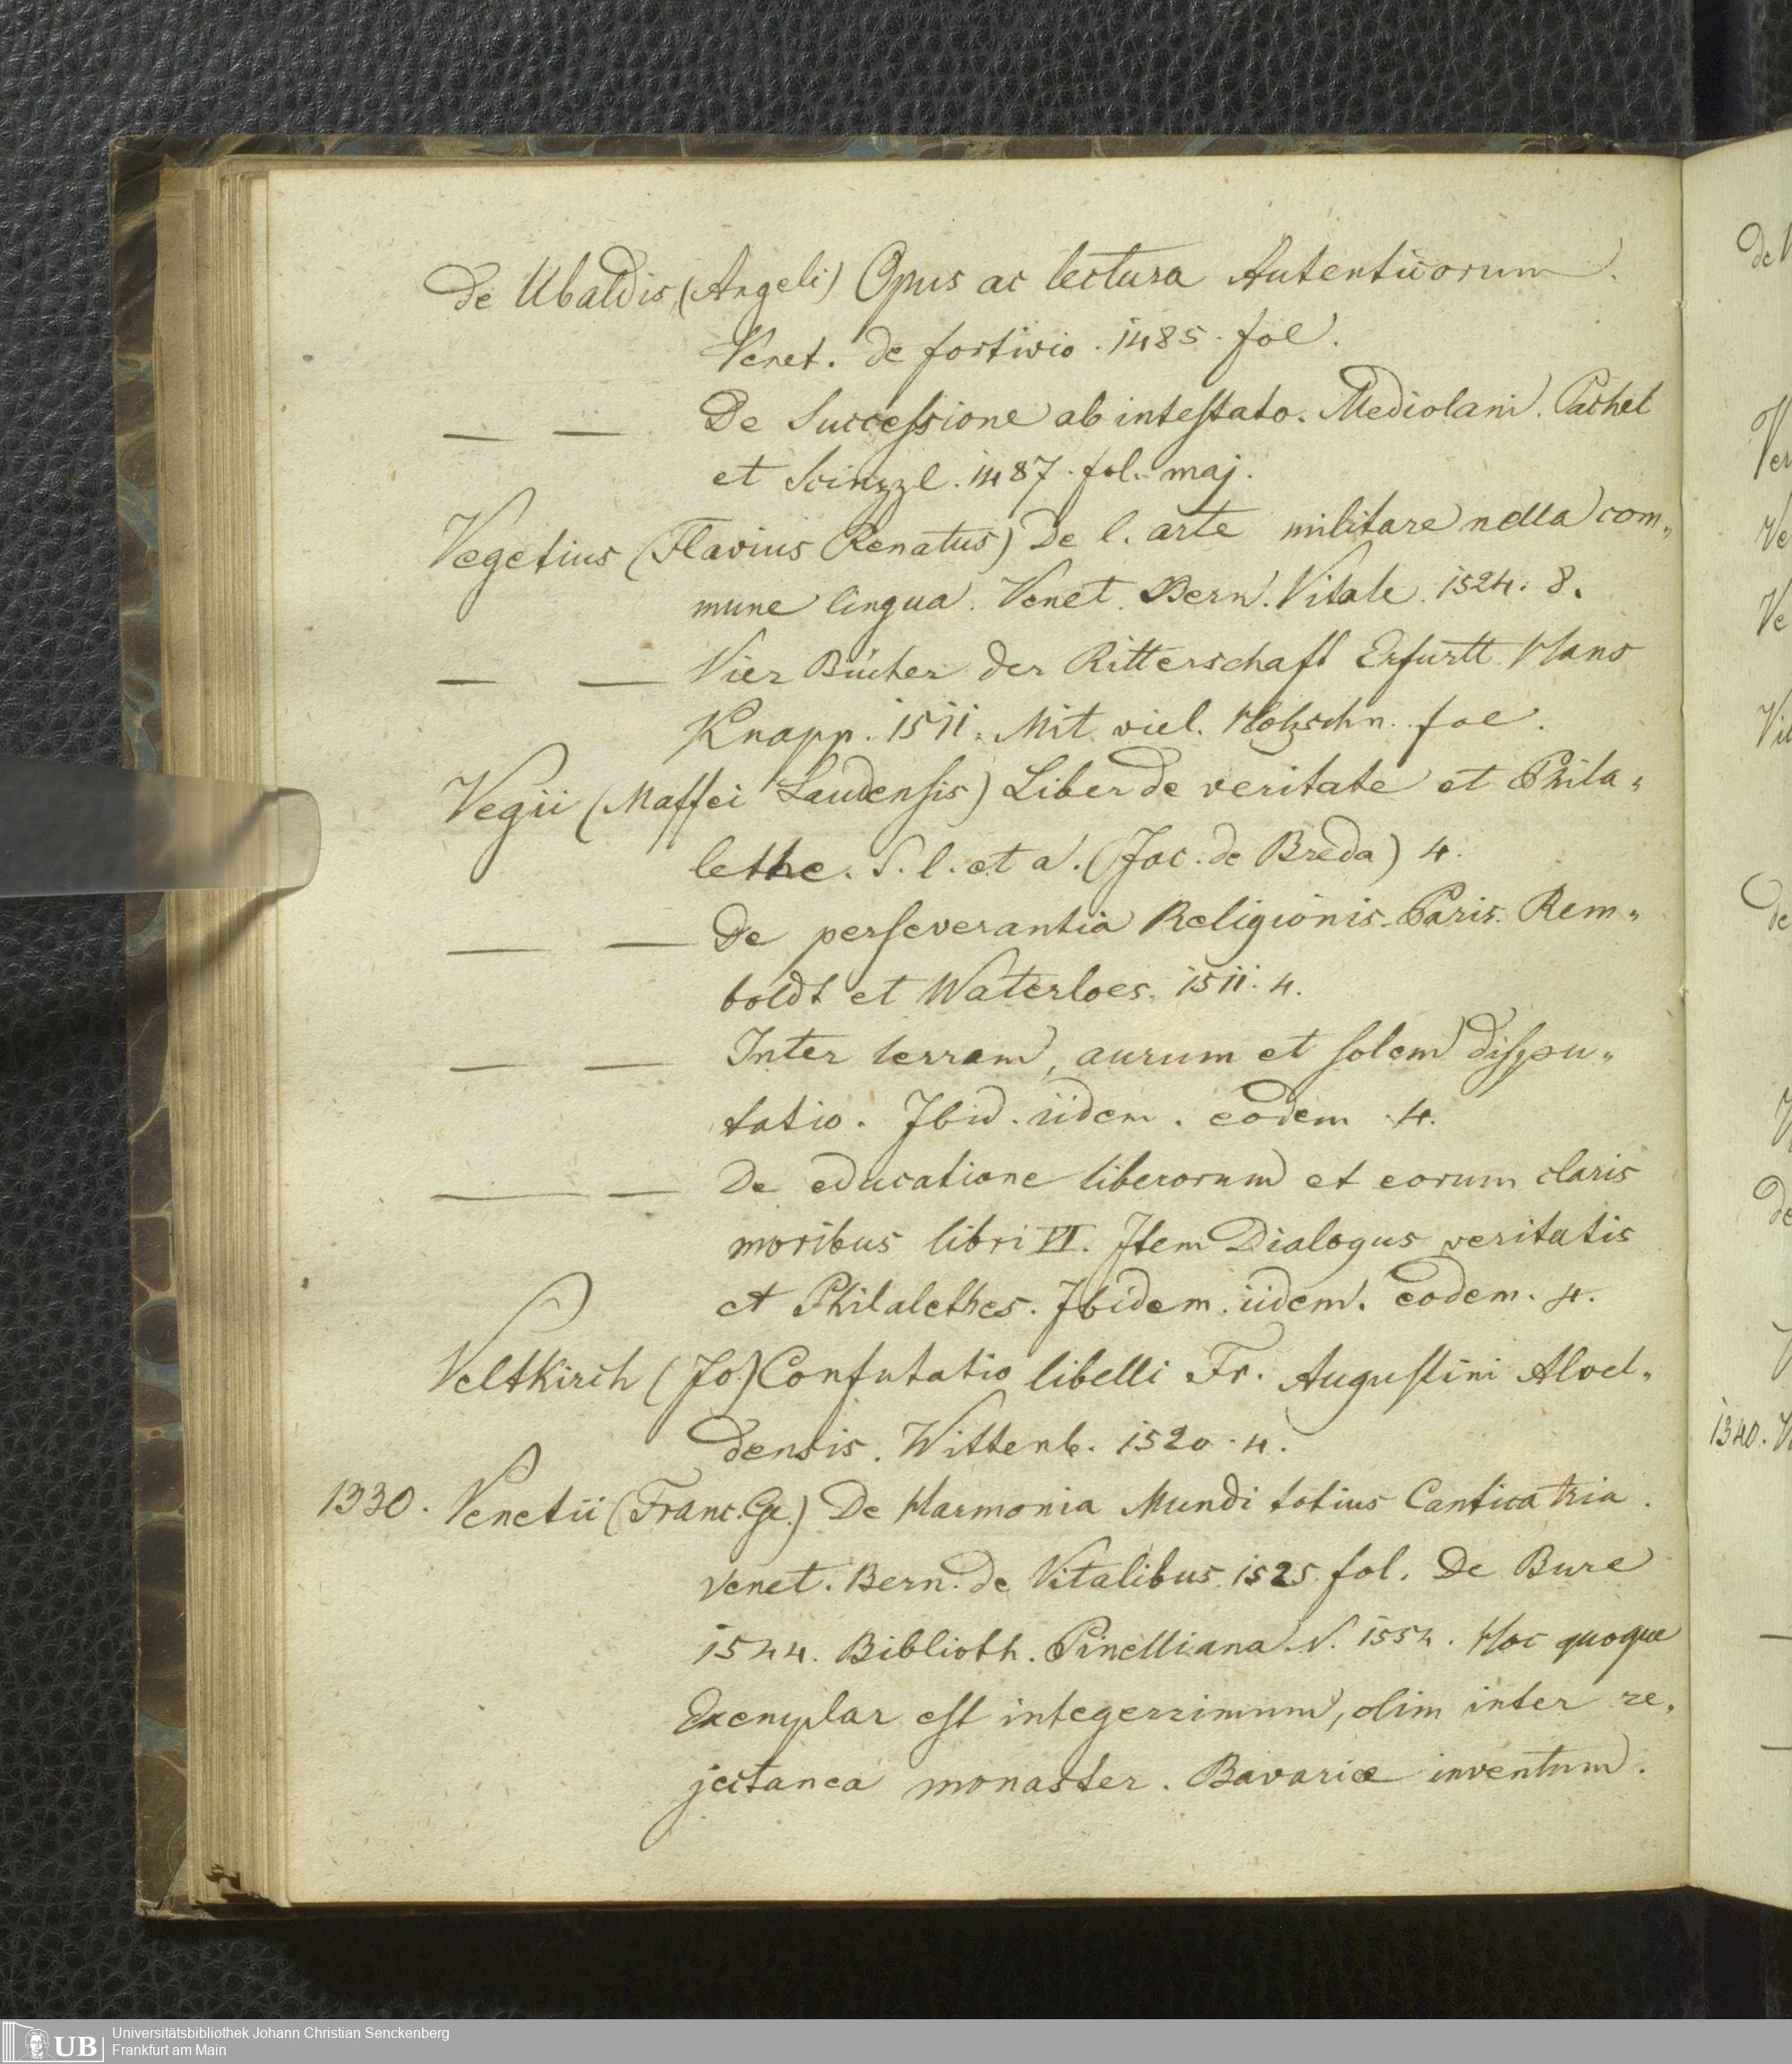 De Ubaldis (Angeli) Opus ac lectura Autenticorum.
Venet. de fortivio. 1485. fol.
— — De Successione ab intestato. Mediolani. Pachel
et Scinzzl. 1487. fol. maj.
Vegetius (Flavius Renatus) De l. arte militare nella com„
mune lingua. Venet. Bern. Vitale. 1524. 8.
— — Vier Bücher der Ritterschaft Erfurtt Hans
Knapp. 1511. Mit viel. Holzschn. fol.
Vegii (Maffei Laudensis) Liber de veritate et Phila„
lethe. S. l. et a. (Jac. de Breda) 4.
— — De perseverantia Religionis. Paris. Rem„
boldt et Waterloes. 1511. 4.
— — Inter terram, aurum et solem dispu„
tatio. Ibid. iidem. eodem 4.
— — De educatione liberorum et eorum claris
moribus libri VI. Item Dialogus veritatis
et Philalethes. Ibidem. iidem. eodem. 4.
Veltkirch (Jo.) Confutatio libelli Fr. Augustini Alvel„
densis. Wittenb. 1520. 4.
1330. Venetii (Franc. Ge.) De Harmonia Mundi totius Cantica tria.
Venet. Bern. de Vitalibus. 1525. fol. De Bure
1544. Biblioth. Pinelliana N. 1554. Hoc quoque
Exemplar est integerrimum, olim inter re„
jectanea monaster. Bavariæ inventum.
de
1340.
UB Universitätsbibliothek Johann Christian Senckenberg
Frankfurt am Main